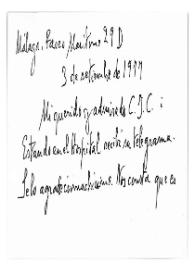 Málaga, Paseo Marítimo 29 D
3 de setiembre de 1977
Mi querido y admirado C. J. C.:
Estando en el Hospital recibí su telegrama.
Se lo agradecí muchísimo. Nos consta que es